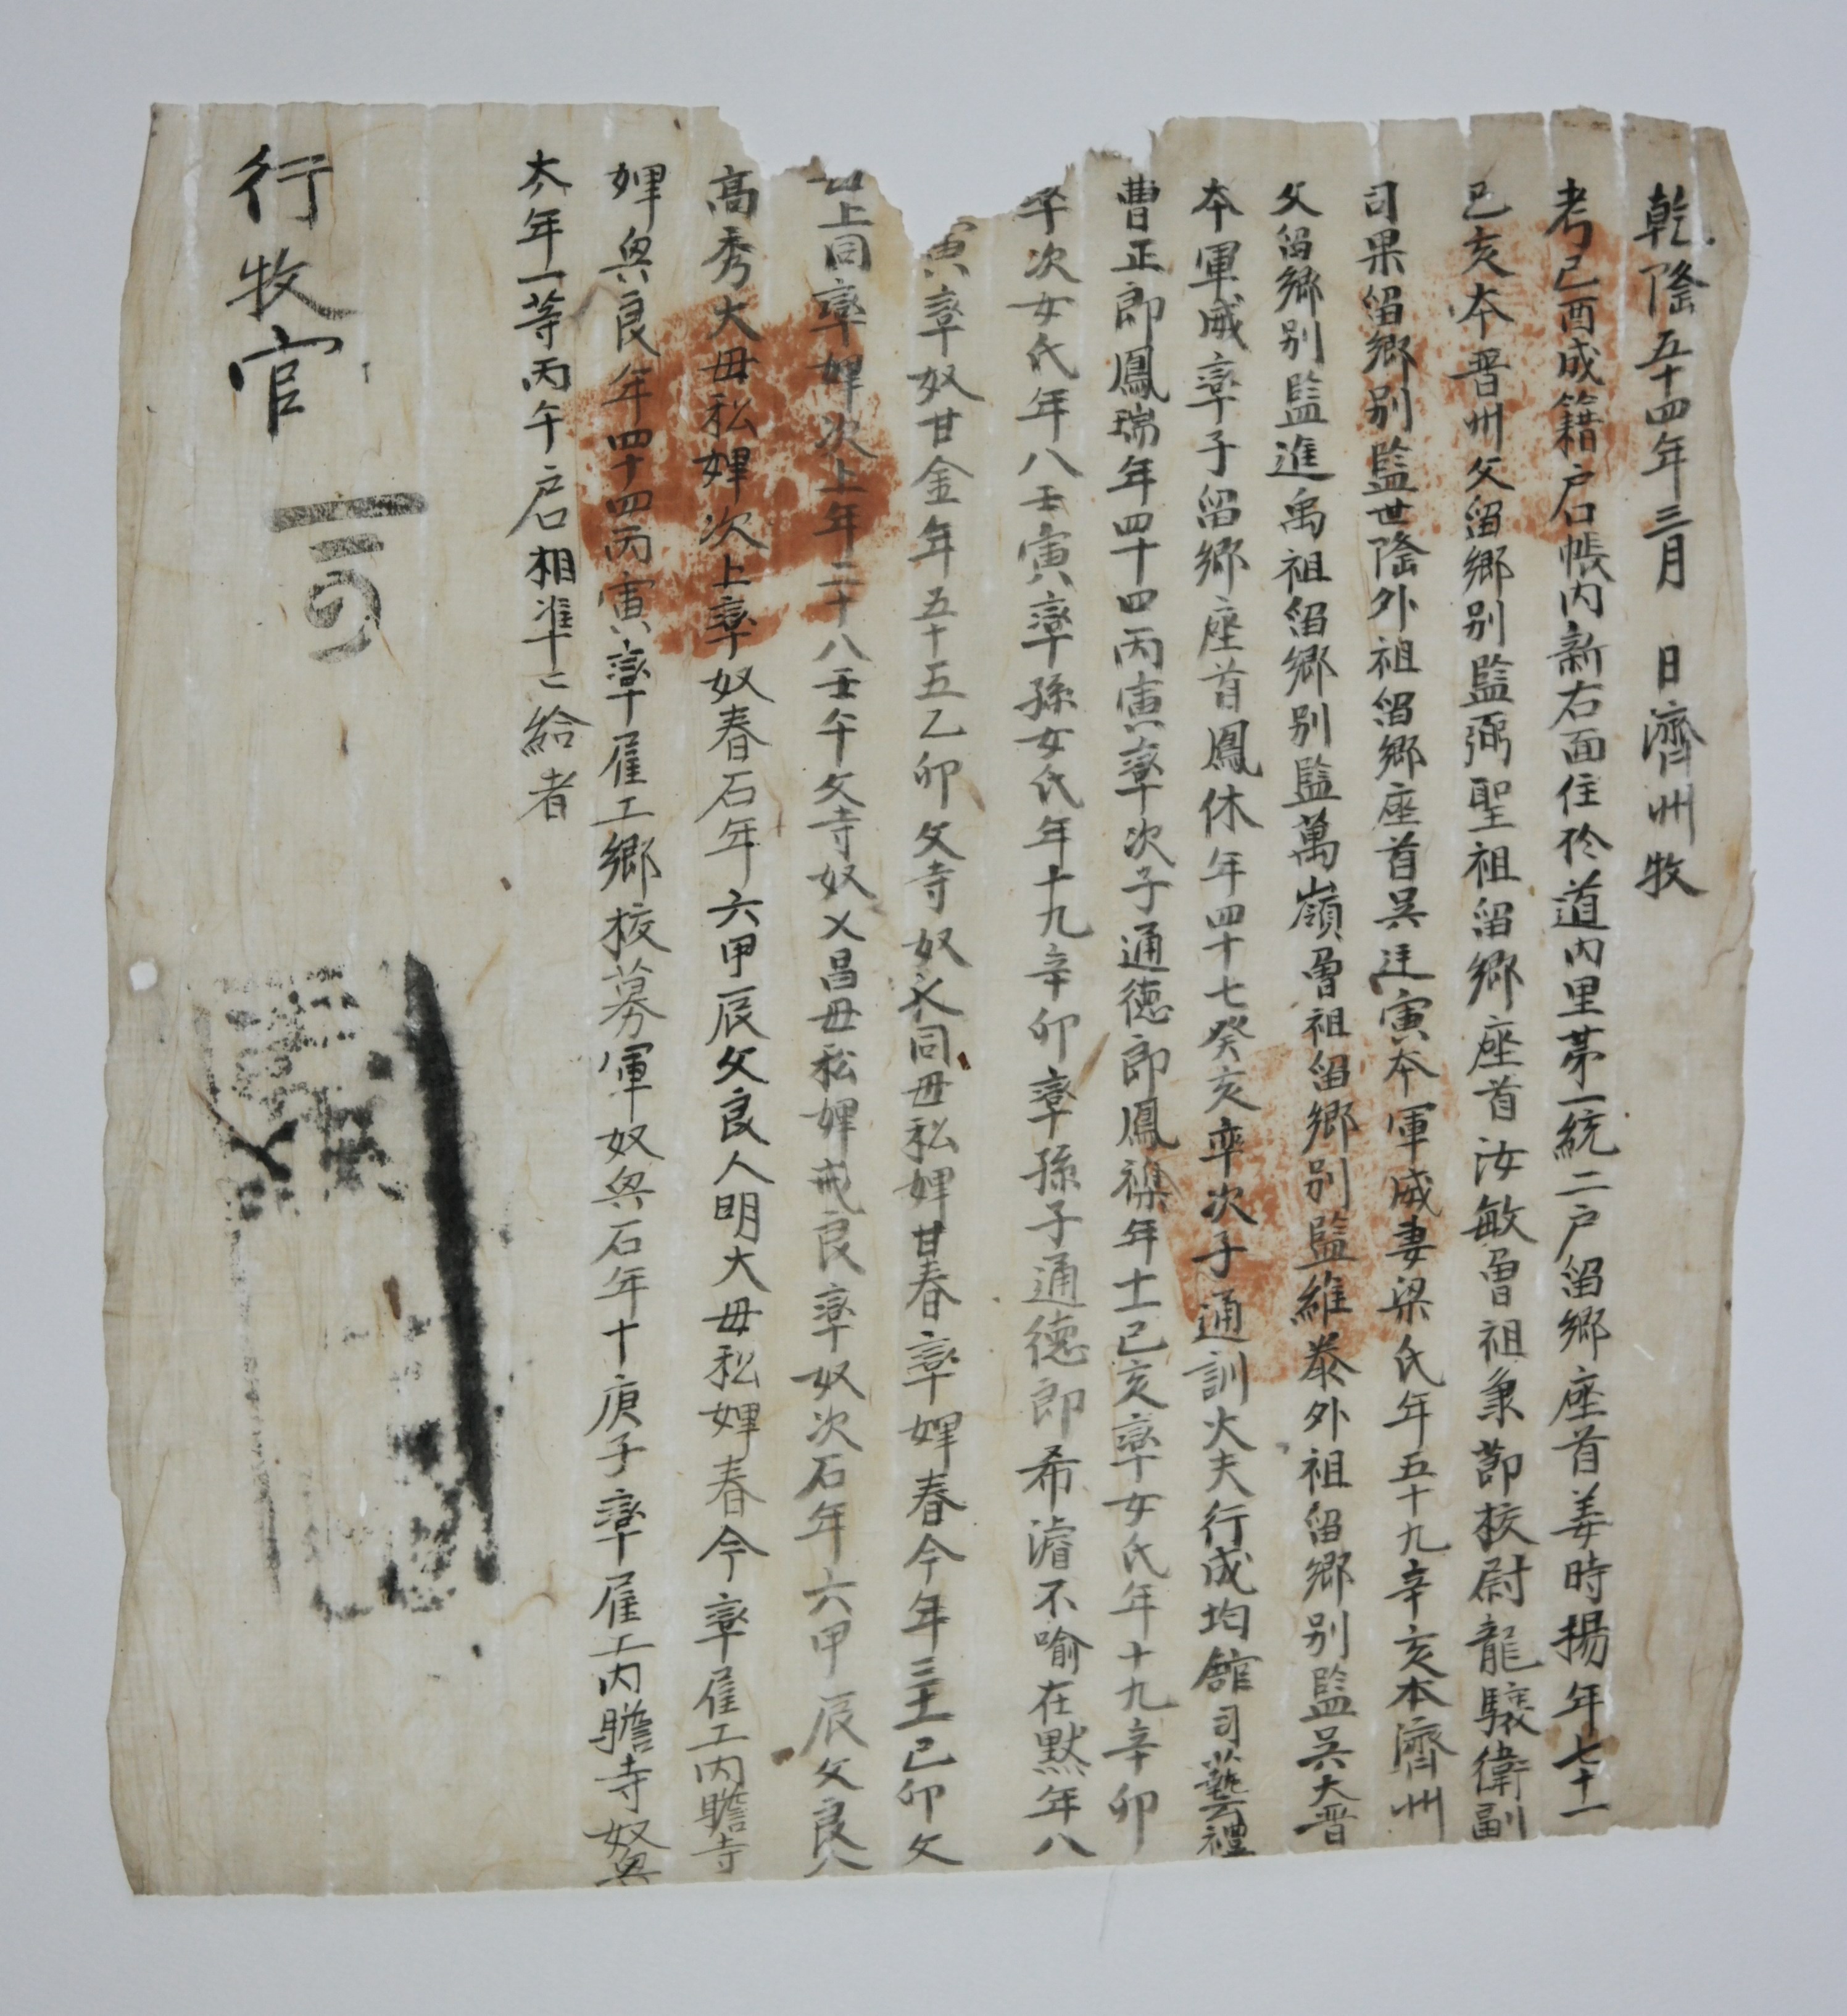 乾隆五十四年三月 日濟州牧
考己酉成籍户口帳內新右面住於道內里苐一統二户留鄉座首姜時揚年七十一
己亥本晋州父留鄉别監弼聖祖留鄉座首汝敏曾祖秉節校尉龍驤衛副
司果留鄉别監世隆外祖留鄉座首吳廷寅本軍威妻梁氏年五十九辛亥本濟州
父留鄉别監進禹祖留鄉别監萬嶺曾祖留鄉别監維泰外祖留鄉别監吳大晋
本軍威率子留鄉座首鳳休年四十七癸亥率次子通訓大夫行成均舘司藝禮
曹正郎鳳瑞年四十四丙寅率次子通德郎鳳𥙿年十一己亥率女氏年十九辛卯
率次女氏年八壬寅率孫女氏年十九辛卯率孫子通德郎希濬不喻在默年八
寅率奴甘金年五十五乙卯父寺奴義同母私婢甘春率婢春今年三十一己卯父
母上同率婢次上年二十八壬午父寺奴義昌母私婢戒良率奴次石年六甲辰父良人
高秀大母私婢次上率奴春石年六甲辰父良人明大母私婢春今率雇工內贍寺
婢與良年四十四丙寅率雇工鄉校募軍奴與石年十庚子率雇工內贍寺奴與
太年一等丙午户口相準々給者
行牧官